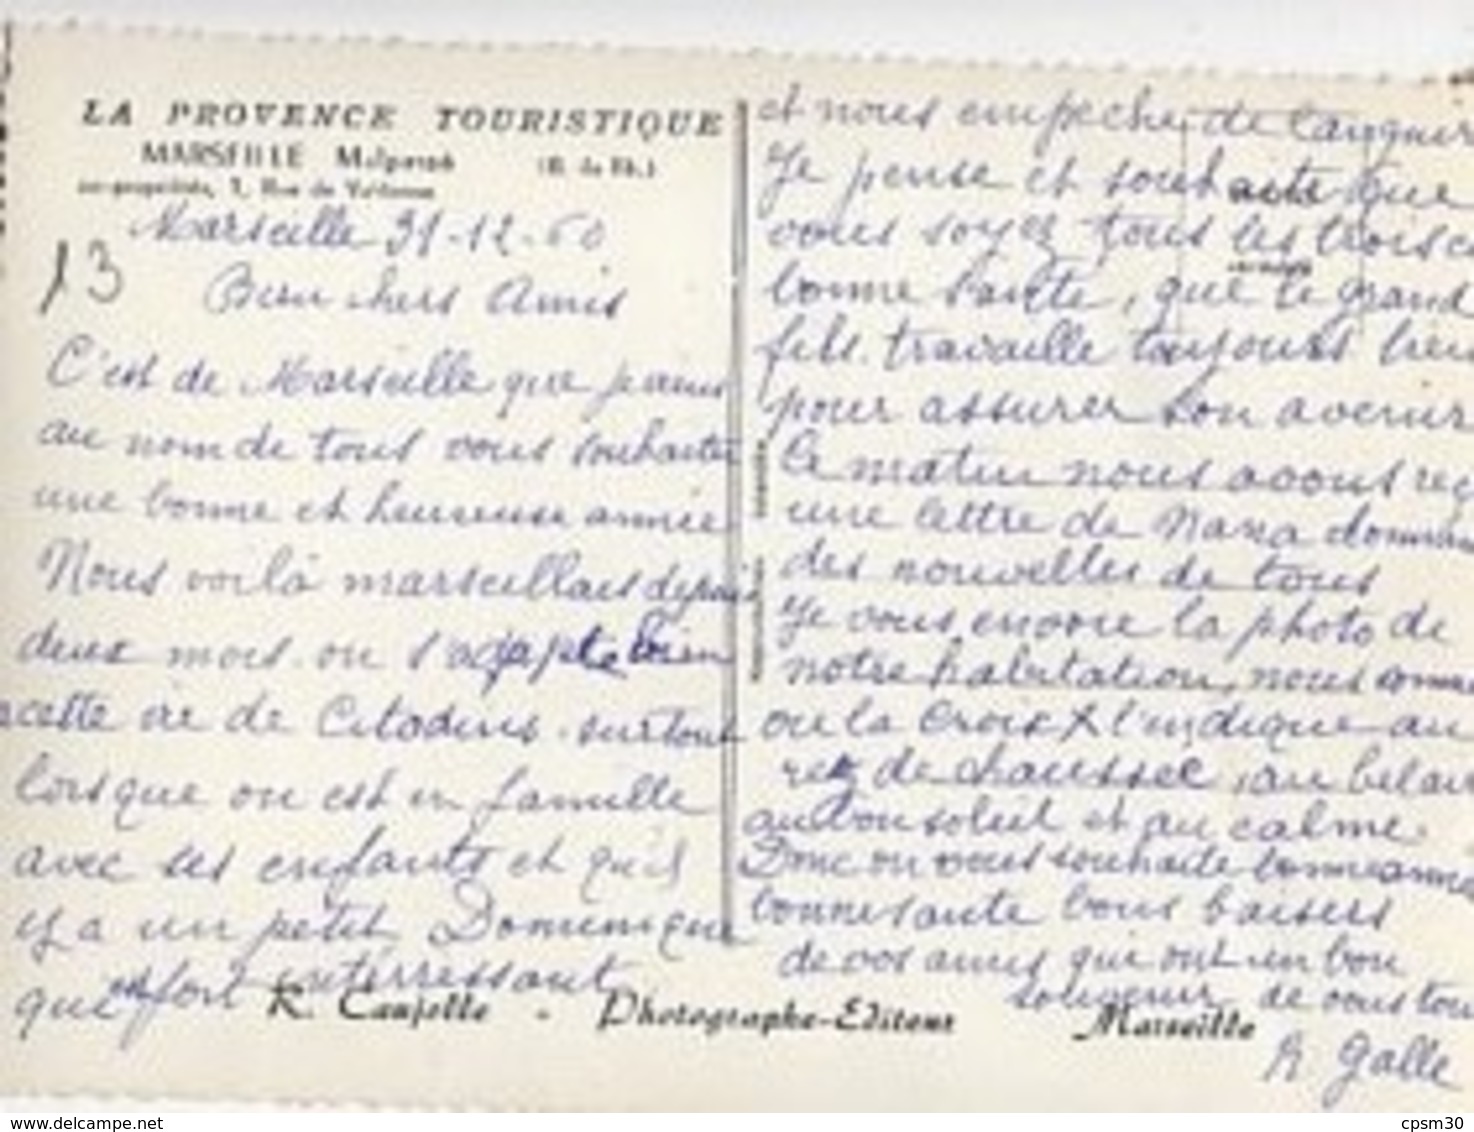 LA PROVENCE TOURISTIQUE
MARSEILLE Malpassé (B. du Rh.)
co-propriétés, 7, Rue de Valdonne
Marseille 31-12-60
13
Bien chers Amis
C'est de Marseille que je viens
au nom de tous vous souhaiter
une bonne et heureuse année
Nous voilà marseillais depuis
deux mois. on s'adapte bien
a cette vie de Citadins. surtout
lorsque on est en famille
avec ses enfants et qu'il
y a un petit Dominique
qui est fort intérressant
et nous empeche de languir
Je pense et souhaite que
vous soyez tous les trois en
bonne Sante, que le grand
fils. travaille toujours bien
pour assurer son avenir
Ce matin nous avons reç
une lettre de Nana donnan
des nouvelles de tous
Je vous envoie la photo de
notre habitation, nous somme
ou la Croix X l'indique au
rez de chaussee, au bel air
au bon soleil et au calme.
Donc on vous souhaite bonne anné
bonne sante bons baisers
de vos amis qui ont un bon
souvenir de vous tou
R. Caujolle - Photographe-Editeur Marseille
R Galle
cpsm30